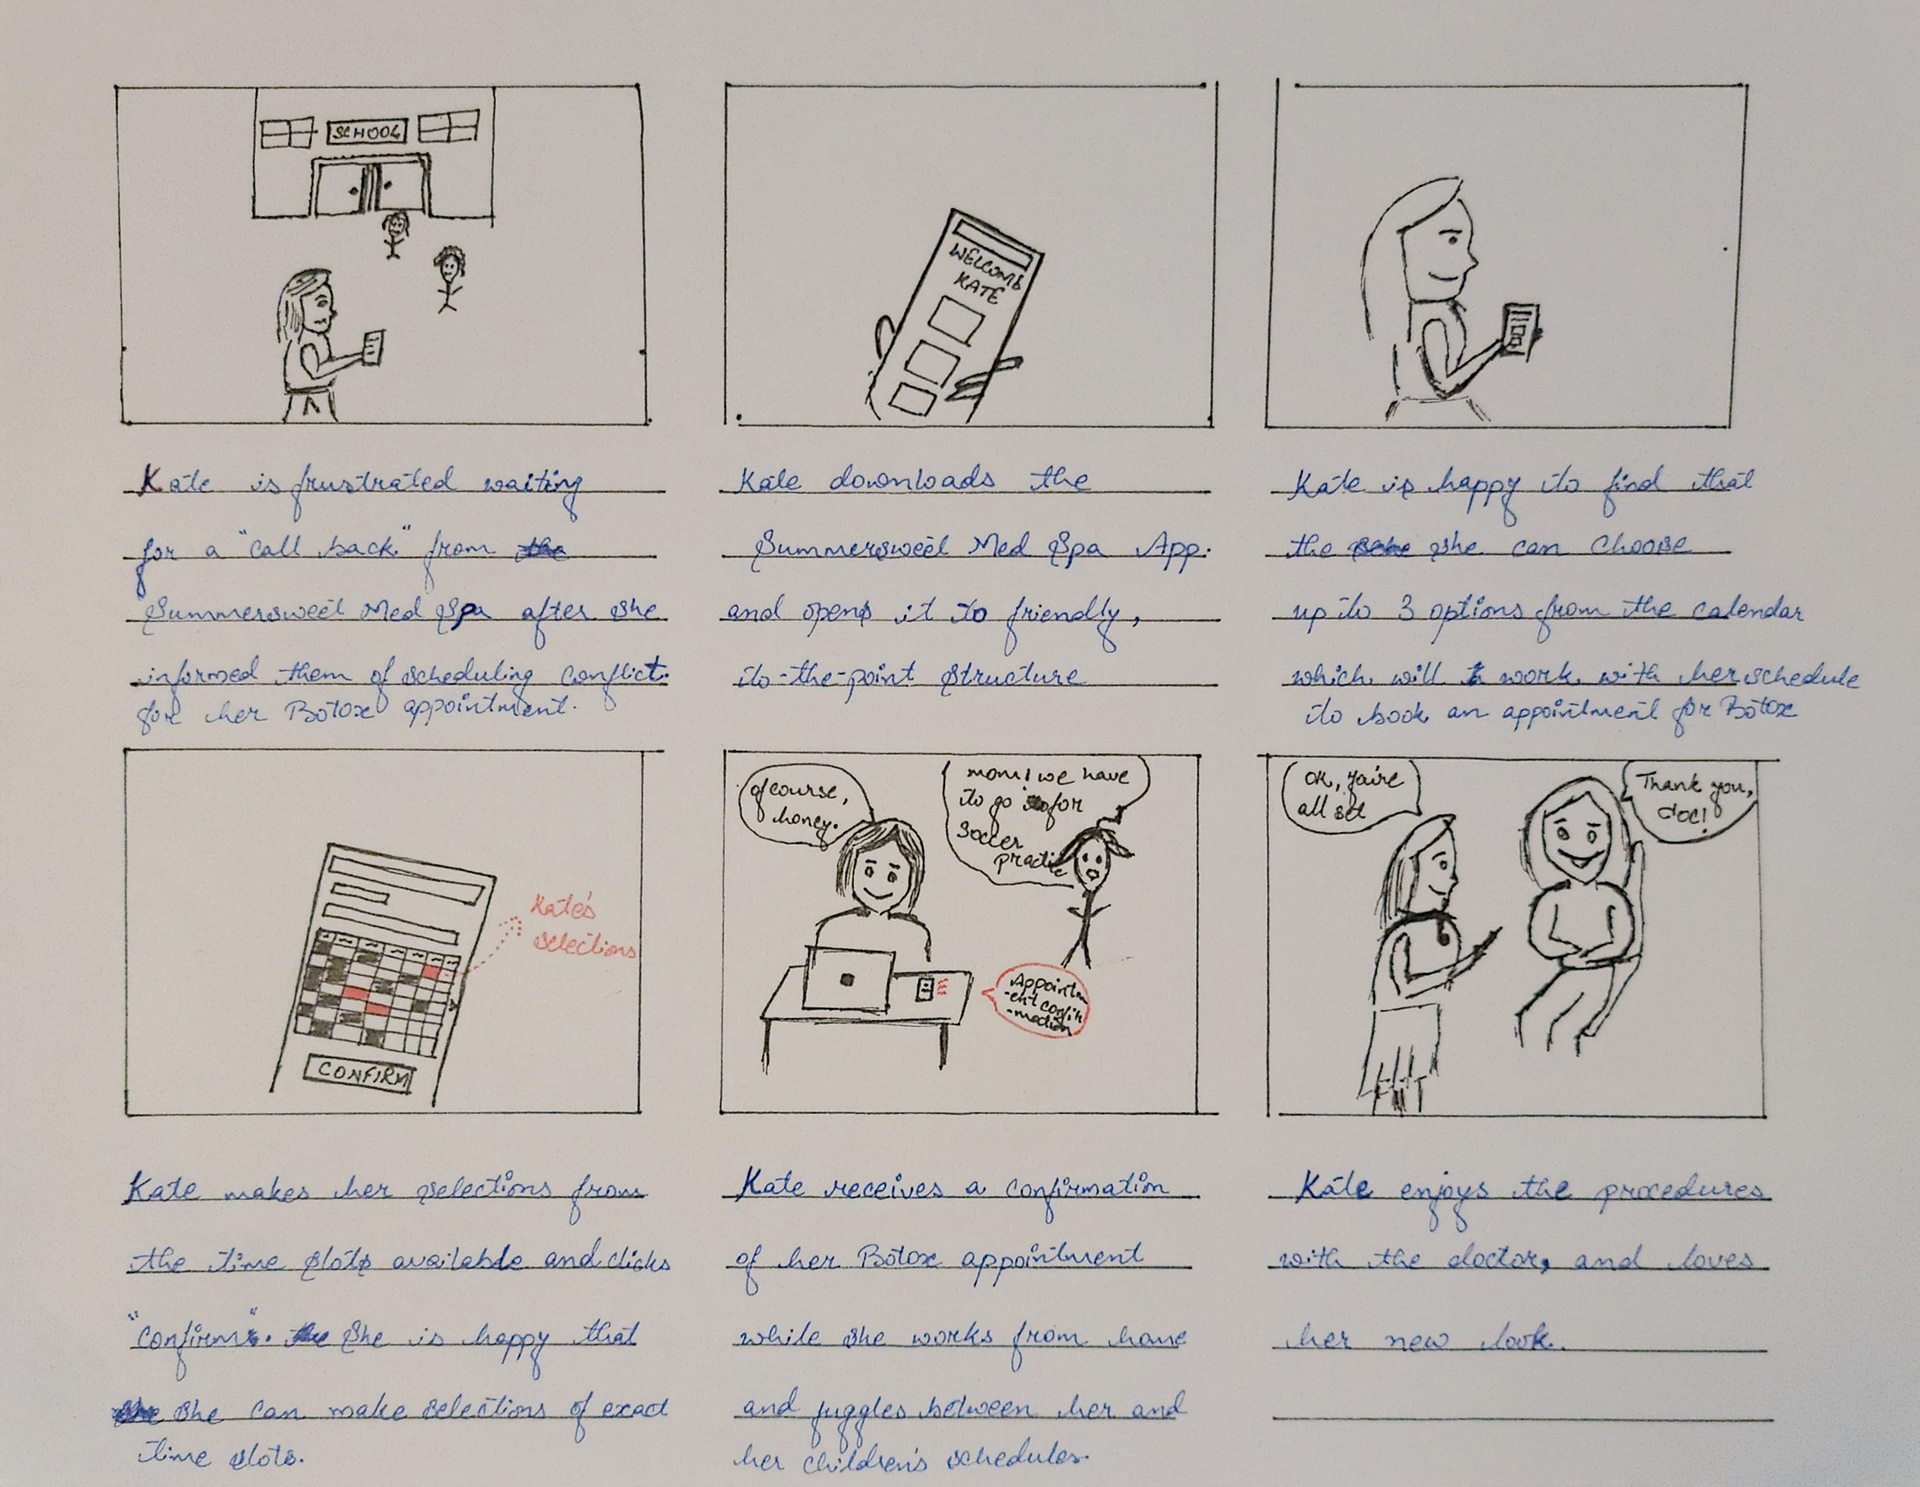 SCHOOL
Kate is frustrated waiting
for a "call back" from the
Summersweet Med Spa after she
informed them of scheduling conflict.
for her Botox appointment.
WELCOME
KATE
Kate downloads the
Summersweet Med Spa App.
and opens it to friendly,
to-the-point structure
Kate is happy to find that
the she can choose
up to 3 options from the calendar
which will work with her schedule
to book an appointment for Botox
Kate's
selections
CONFIRM
Kate makes her selections from
the time slots available and clicks
"confirm". the She is happy that
she She can make selections of exact
time slots.
of course,
honey.
mom! we have
to go for
soccer
practice
Appointm
-ent confir
-mation
Kate receives a confirmation
of her Botox appointment
while she works from home
and juggles between her and
her children's schedules.
OK, you're
all set
Thank you,
doc!
Kate enjoys the procedures
with the doctor, and loves
her new look.